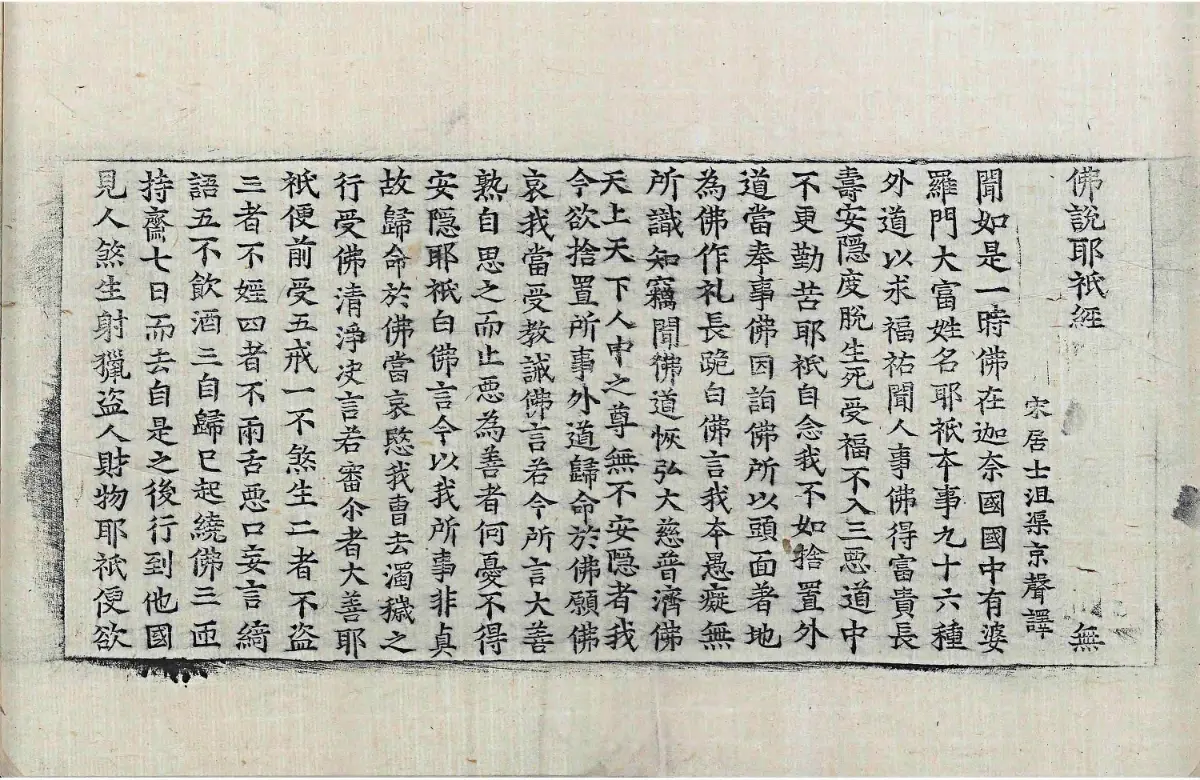 佛說耶祇經 無
宋居士沮渠京聲譯
聞如是一時佛在迦奈國國中有婆
羅門大富姓名耶祇夲事九十六種
外道以求福祐聞人事佛得富貴長
壽安隐度脫生死受福不入三惡道中
不更勤苦耶祇自念我不如捨置外
道當奉事佛因詣佛所以頭面著地
為佛作礼長跪白佛言我夲愚癡無
所識知竊聞佛道恢弘大慈普濟佛
天上天下人中之尊無不安隐者我
今欲捨置所事外道歸命於佛願佛
哀我當受教誡佛言若今所言大善
熟自思之而止惡為善者何憂不得
安隐耶祇白佛言今以我所事非真
故歸命於佛當哀愍我曹去濁穢之
行受佛清淨决言若審尒者大善耶
祇便前受五戒一不煞生二者不盗
三者不婬四者不兩舌惡口妄言綺
語五不飲酒三自歸已起繞佛三匝
持齋七日而去自是之後行到他國
見人煞生射獵盗人財物耶祇便欲